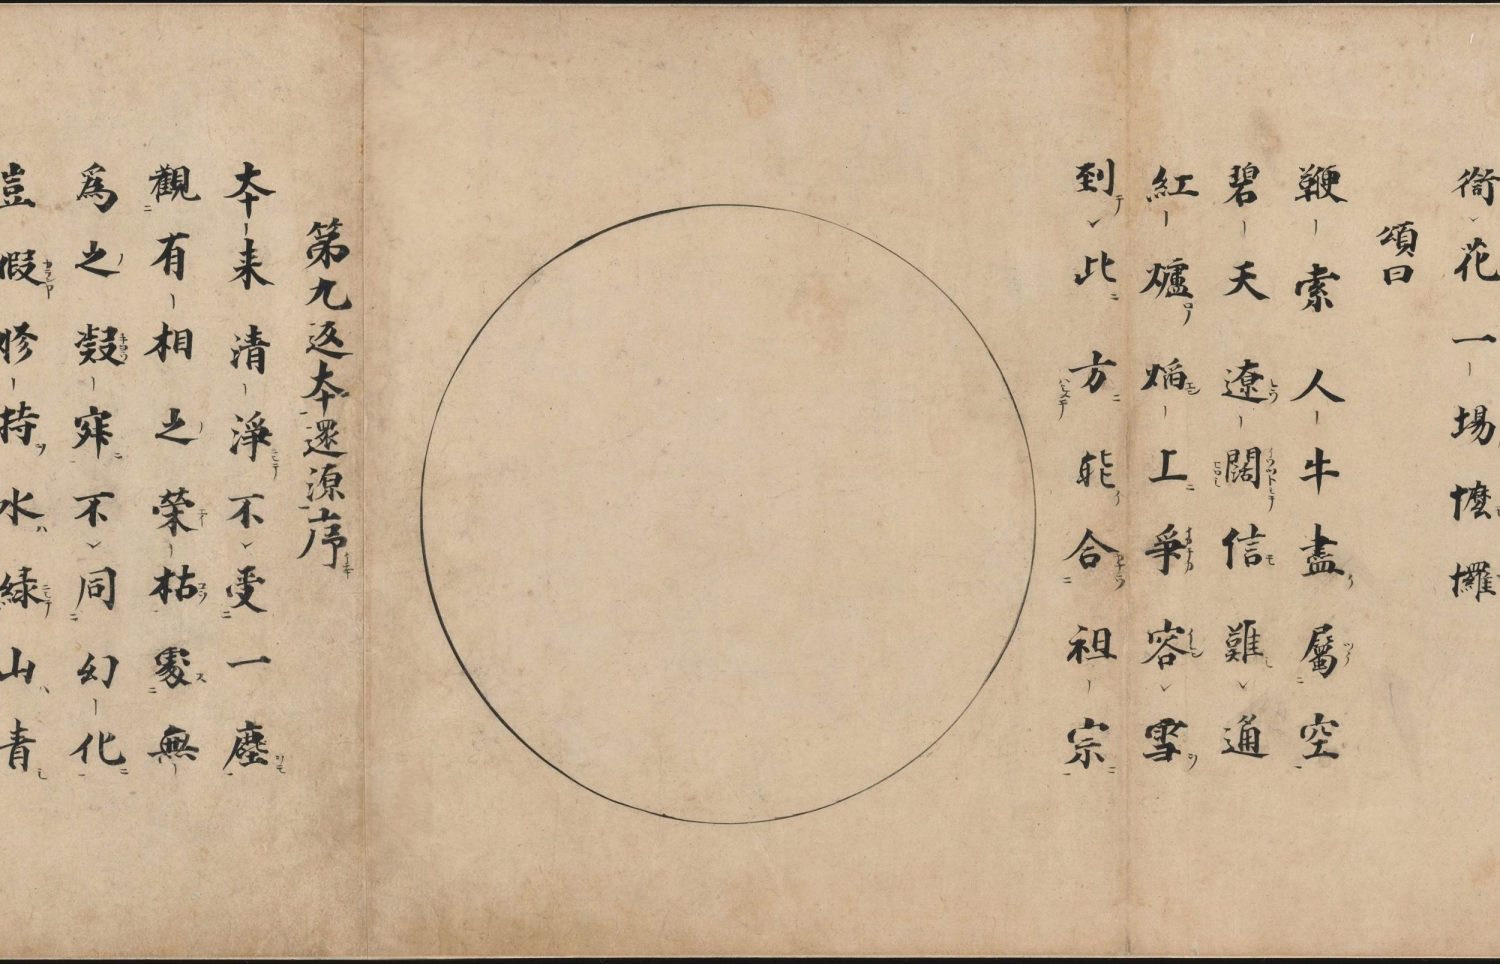 銜花一場懡㦬
頌曰
鞭索人牛盡屬空
碧天遼闊信難通
紅爐焔上爭容雪
到此方能合祖宗
第九返本還源序
本来清淨不受一塵
觀有相之榮枯處無
爲之凝寂不同幻化
豈假修持水緑山青